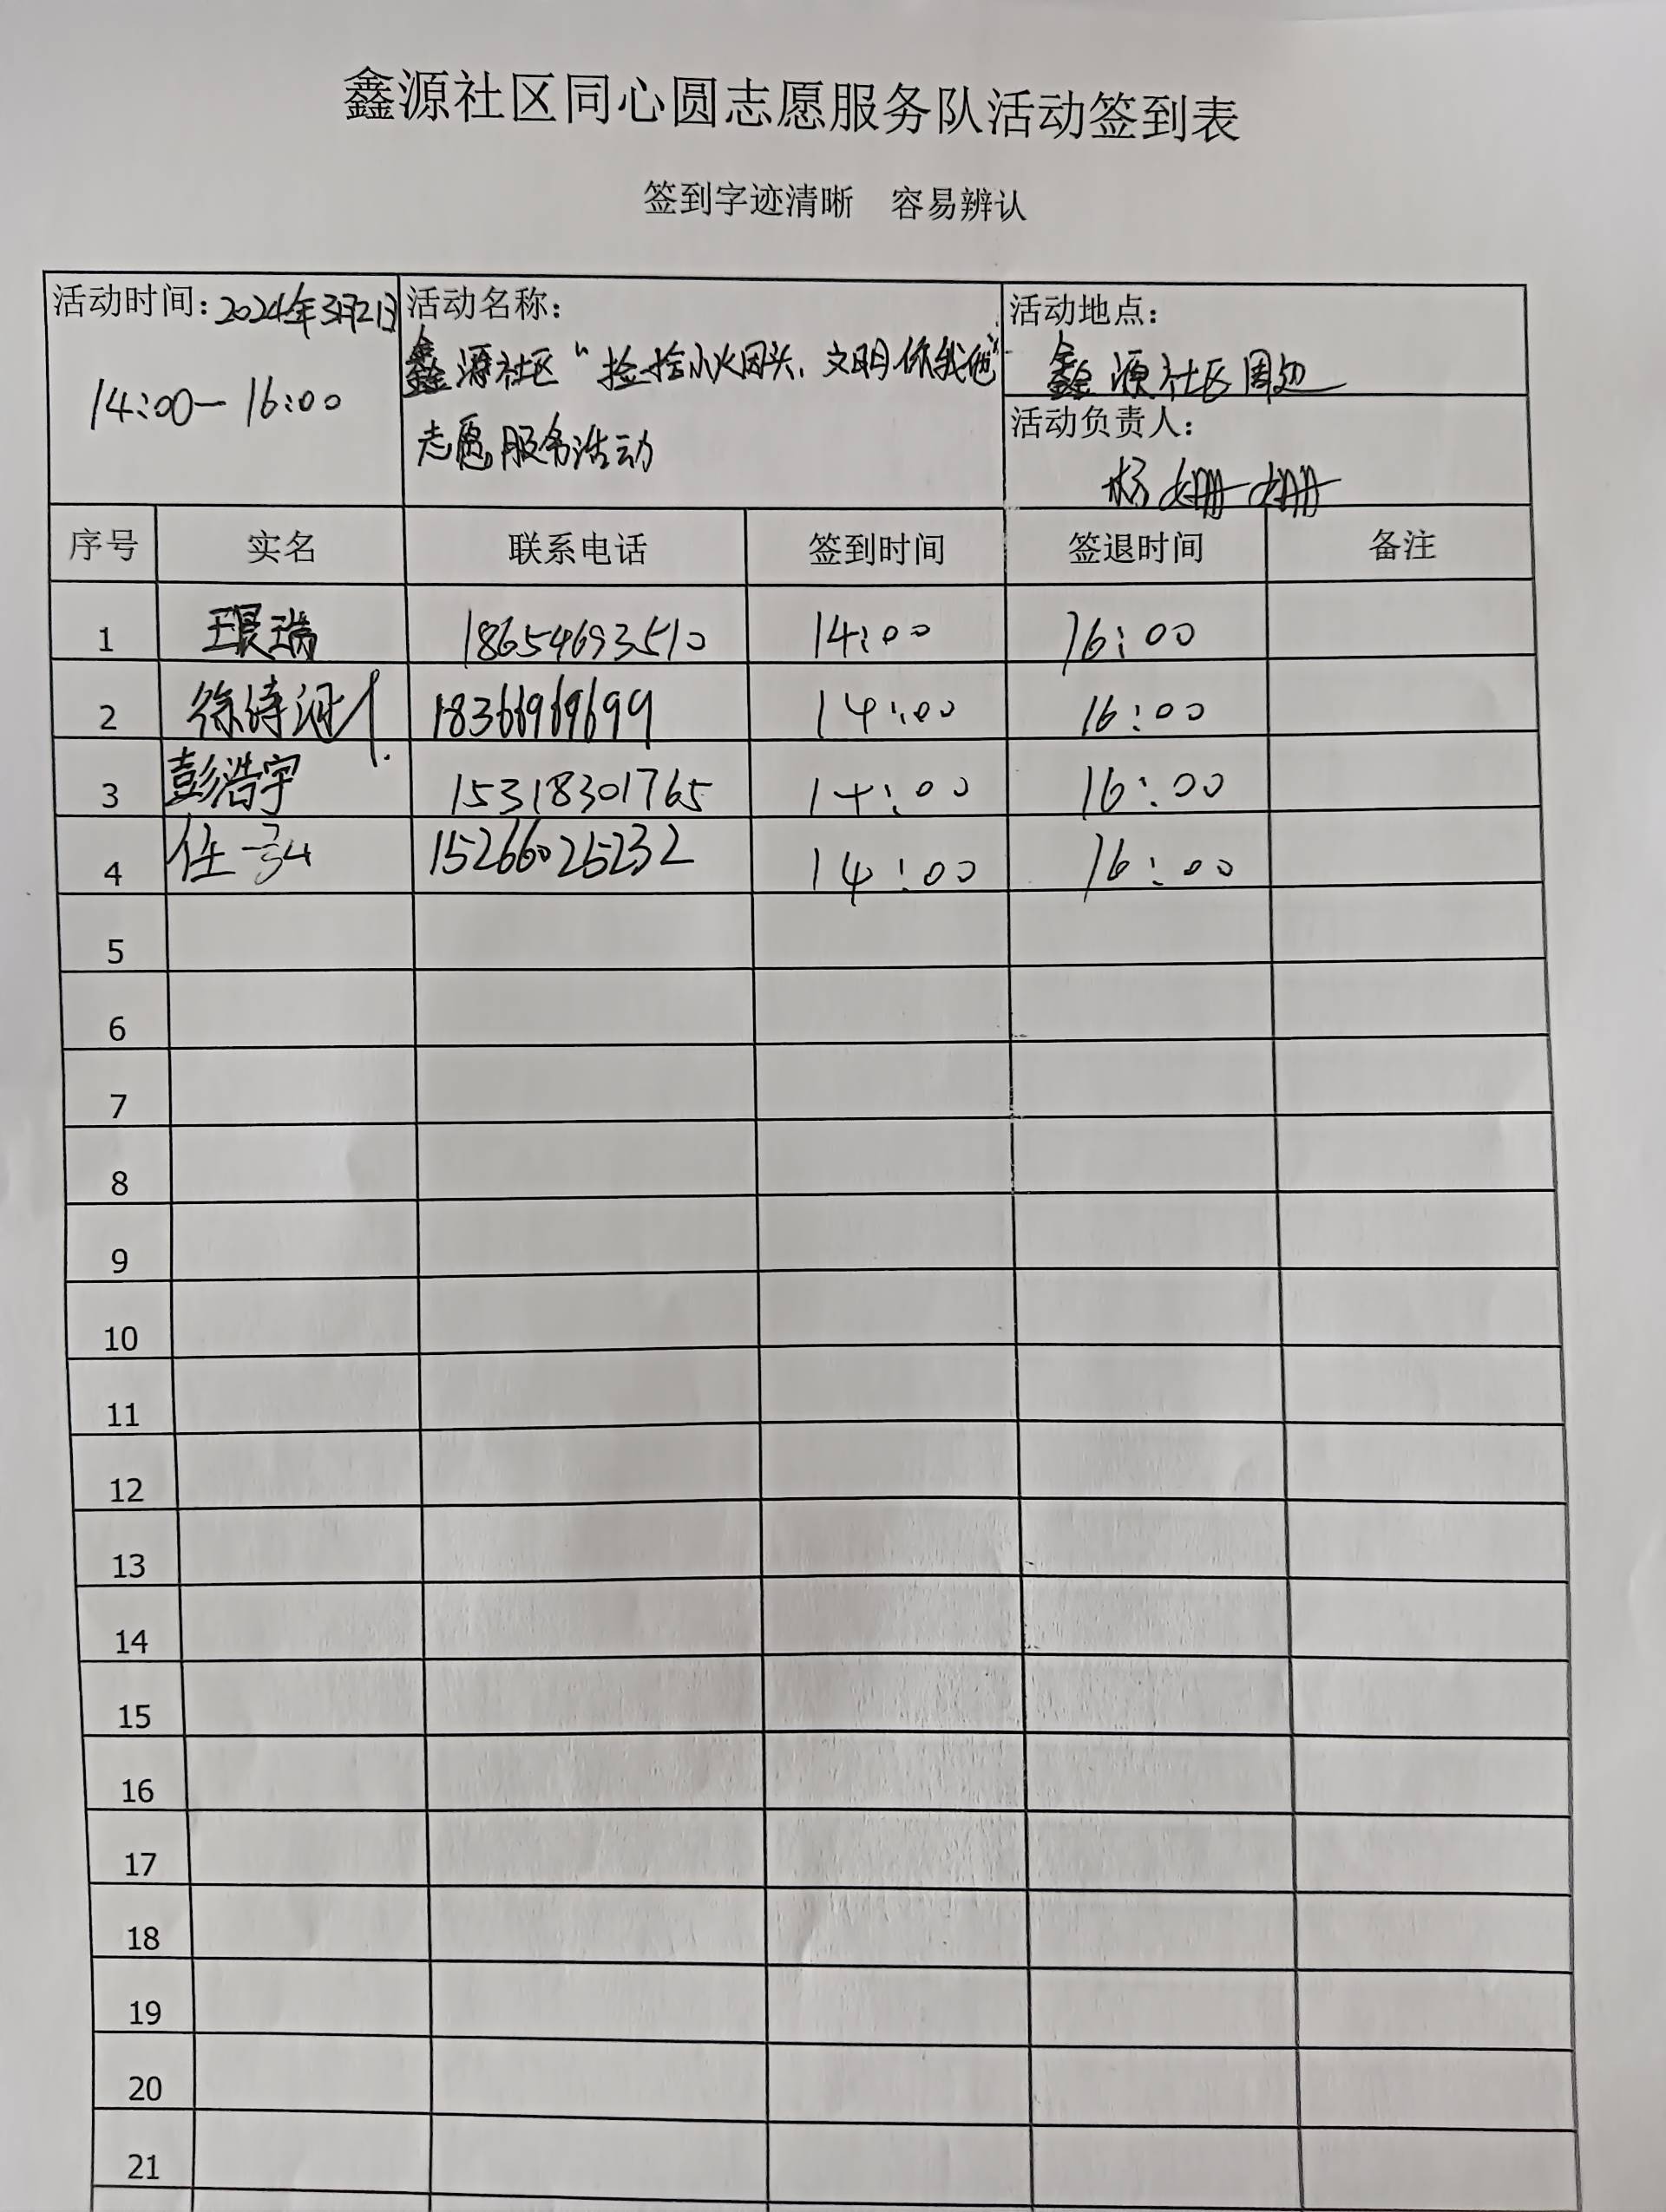 鑫源社区同心圆志愿服务队活动签到表
签到字迹清晰 容易辨认
活动时间：2024年3月21日
14:00—16:00
活动名称：
鑫源社区“捡拾小火因头、文明你我他”
志愿服务活动
活动地点：
鑫源社区周边
活动负责人：
杨姗姗
序号 实名 联系电话 签到时间 签退时间 备注
1 瑞 18654693510 14:00 16:00
2 徐诗 18366969699 14:00 16:00
3 彭浩宇 15318301765 14:00 16:00
4 任 15266025232 14:00 16:00
5
6
7
8
9
10
11
12
13
14
15
16
17
18
19
20
21